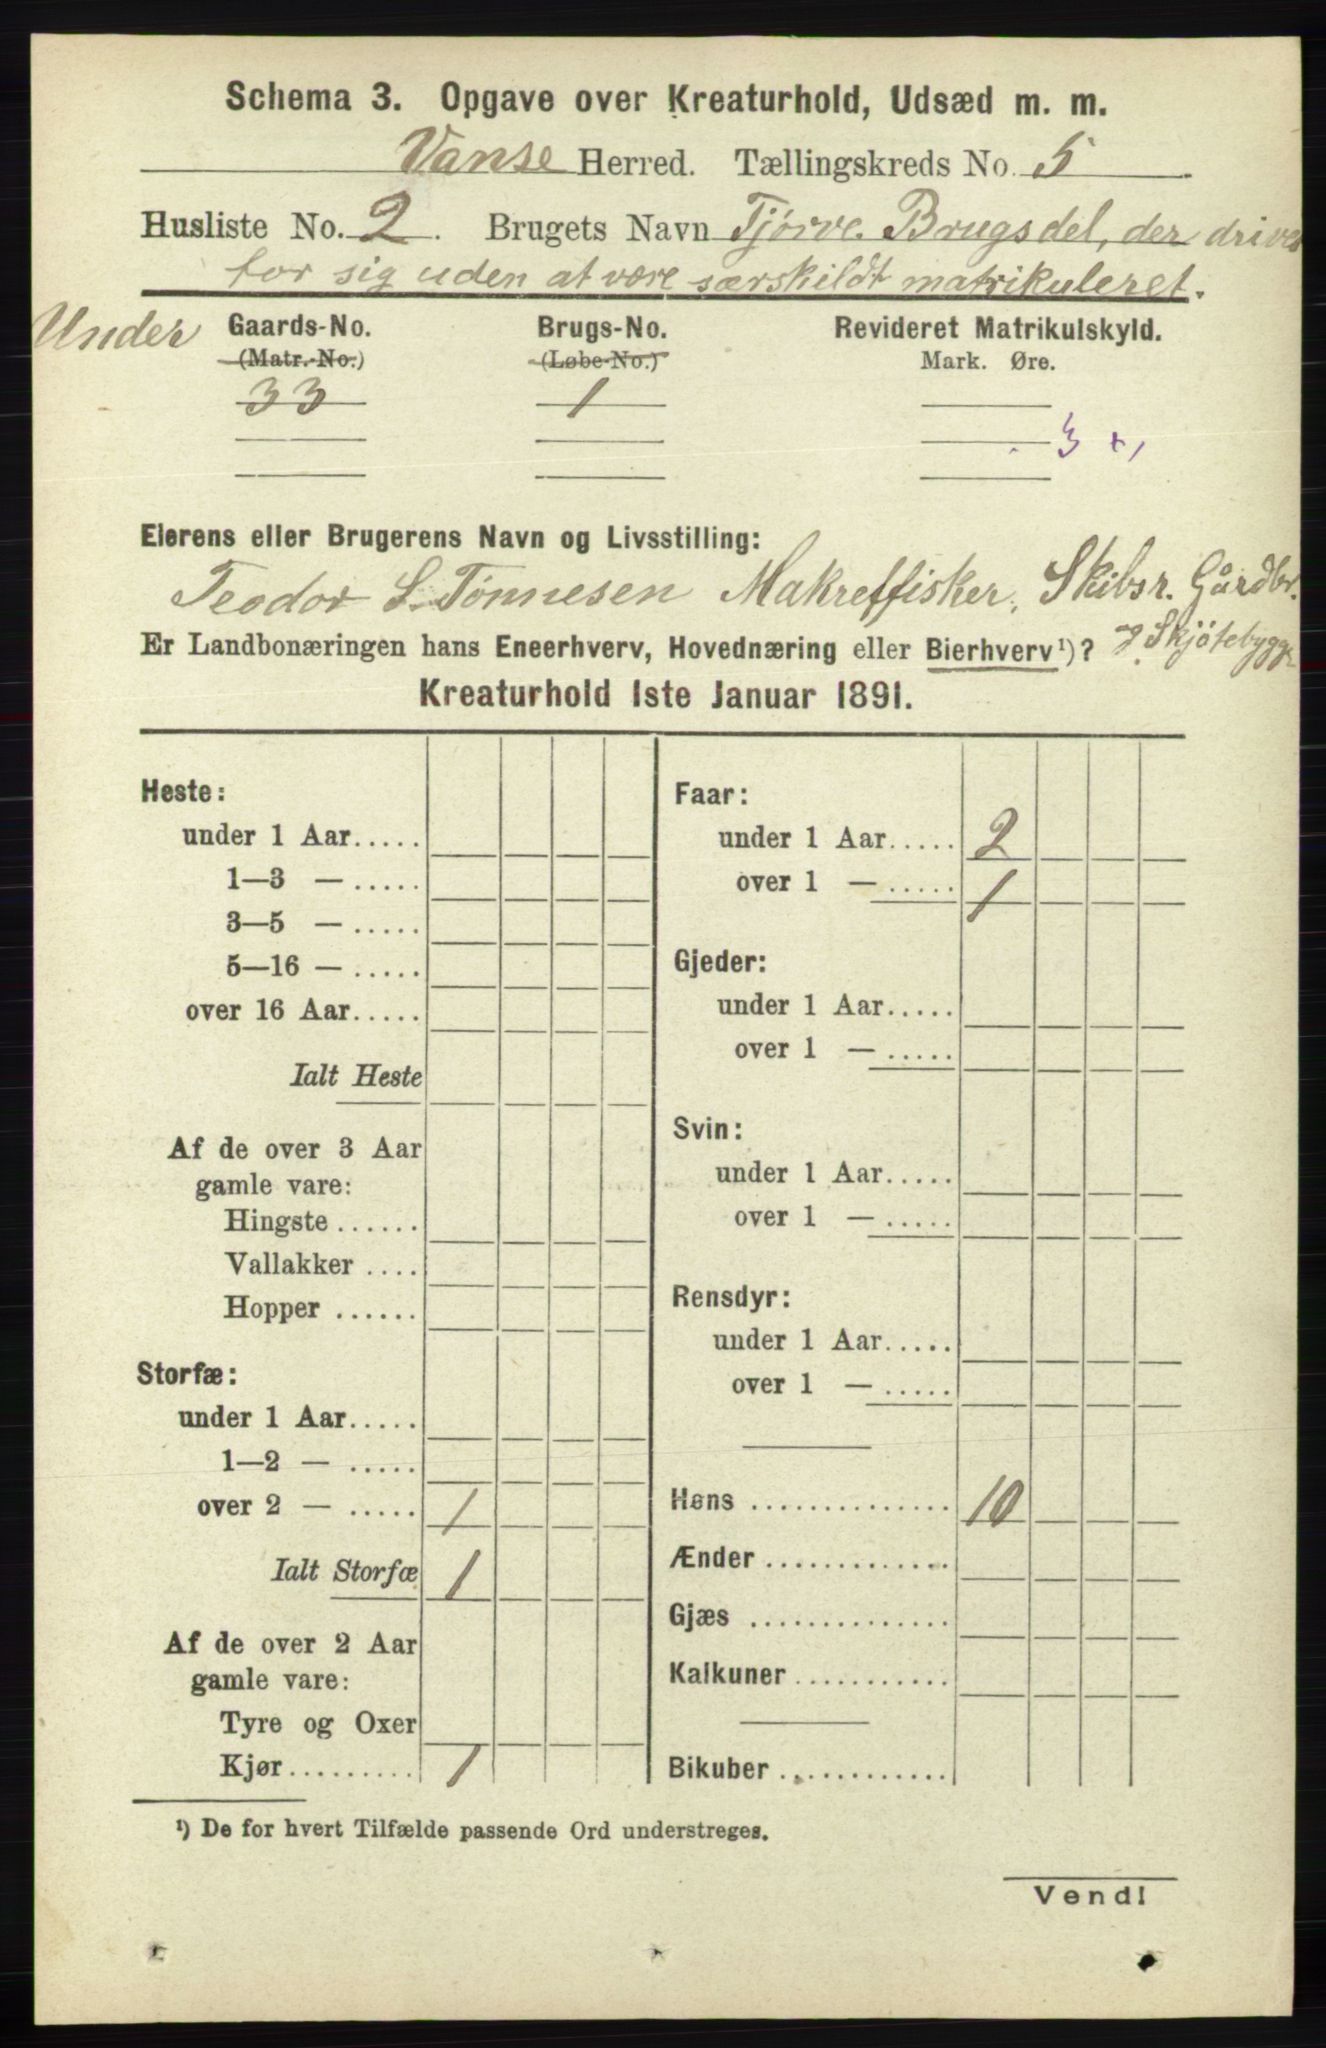 Schema 3. Opgave over Kreaturhold, Udsæd m. m.
Vanse Herred. Tællingskreds No. 5.
Husliste No. 2. Brugets Navn Tjörve. Brugsdel, der drives
for sig uden at være særskildt matrikuleret.
Under Gaards-No. Brugs-No. Revideret Matrikulskyld.
(Matr.-No.) (Løbe-No.) Mark. Øre.
33 1
3 + 1
Eierens eller Brugerens Navn og Livsstilling:
Teodor S. Tönnesen Makrelfisker, Skibsr. Gårdbr.
Er Landbonæringen hans Eneerhverv, Hovednæring eller Bierhverv¹)? & Skjötebygger
Kreaturhold 1ste Januar 1891.
Heste:
under 1 Aar.....
1—3 — .....
3—5 — .....
5—16 — .....
over 16 Aar.....
Ialt Heste
Af de over 3 Aar
gamle vare:
Hingste ......
Vallakker ....
Hopper ......
Storfæ:
under 1 Aar.....
1—2 — .....
over 2 — ..... 1
Ialt Storfæ 1
Af de over 2 Aar
gamle vare:
Tyre og Oxer
Kjør......... 1
Faar:
under 1 Aar..... 2
over 1 — ..... 1
Gjeder:
under 1 Aar.....
over 1 — .....
Svin:
under 1 Aar.....
over 1 — .....
Rensdyr:
under 1 Aar.....
over 1 — .....
Høns .............. 10
Ænder .............
Gjæs ..............
Kalkuner ...........
Bikuber ............
¹) De for hvert Tilfælde passende Ord understreges.
Vend!